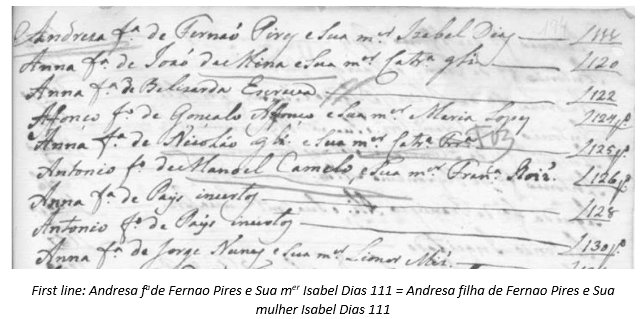 Andreza fª de Fernaõ Pires e Sua mer Izabel Dias 111
Anna fª de Joaõ da Mina e Sua mer Catrª 120
Anna fª de Belizarda Escrava 122
Afonço fº de Gonçalo Affonço e Sua mer Maria Lopes 124
Anna fª de Nicolão e Sua mer Catrª 125
Antonio fº de Manoel Camelo e Sua mer Franª Roiz. 126
Anna fª de Pays incertos 128
Antonio fº de Pays incertos
Anna fª de Jorge Nunes e Sua mer Lianor 130
First line: Andresa fºde Fernao Pires e Sua mer Isabel Dias 111 = Andresa filha de Fernao Pires e Sua
mulher Isabel Dias 111